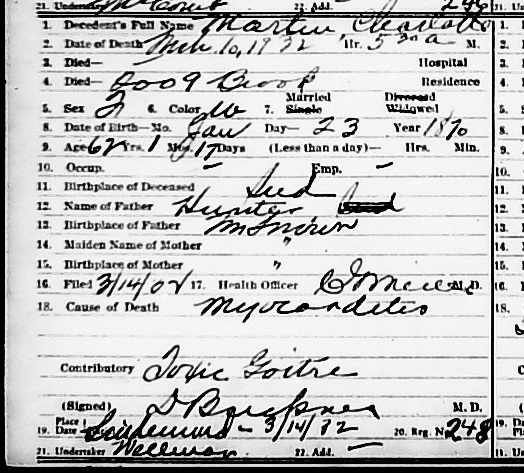 21. Undertaker 22. Add. 246
1. Decedent's Full Name Martin, Charlotte
2. Date of Death Mch. 10, 1932 Hr. 5 30 a M.
3. Died— Hospital
4. Died— 2009 Brook Residence
5. Sex F 6. Color W 7. Married Single Divorced Widowed
8. Date of Birth—Mo. Jan Day— 23 Year 1870
9. Age 62 Yrs. 1 Mos. 17 Days (Less than a day)— Hrs. Min.
10. Occup. Emp.
11. Birthplace of Deceased Ind
12. Name of Father Hunter
13. Birthplace of Father Unknown
14. Maiden Name of Mother "
15. Birthplace of Mother "
16. Filed 3/14/02 17. Health Officer M. D.
18. Cause of Death Myocarditis
Contributory Toxic Goitre
(Signed) M. D.
19. Place Date 3/14/32 20. Reg. N 248
21. Undertaker 22. Add.